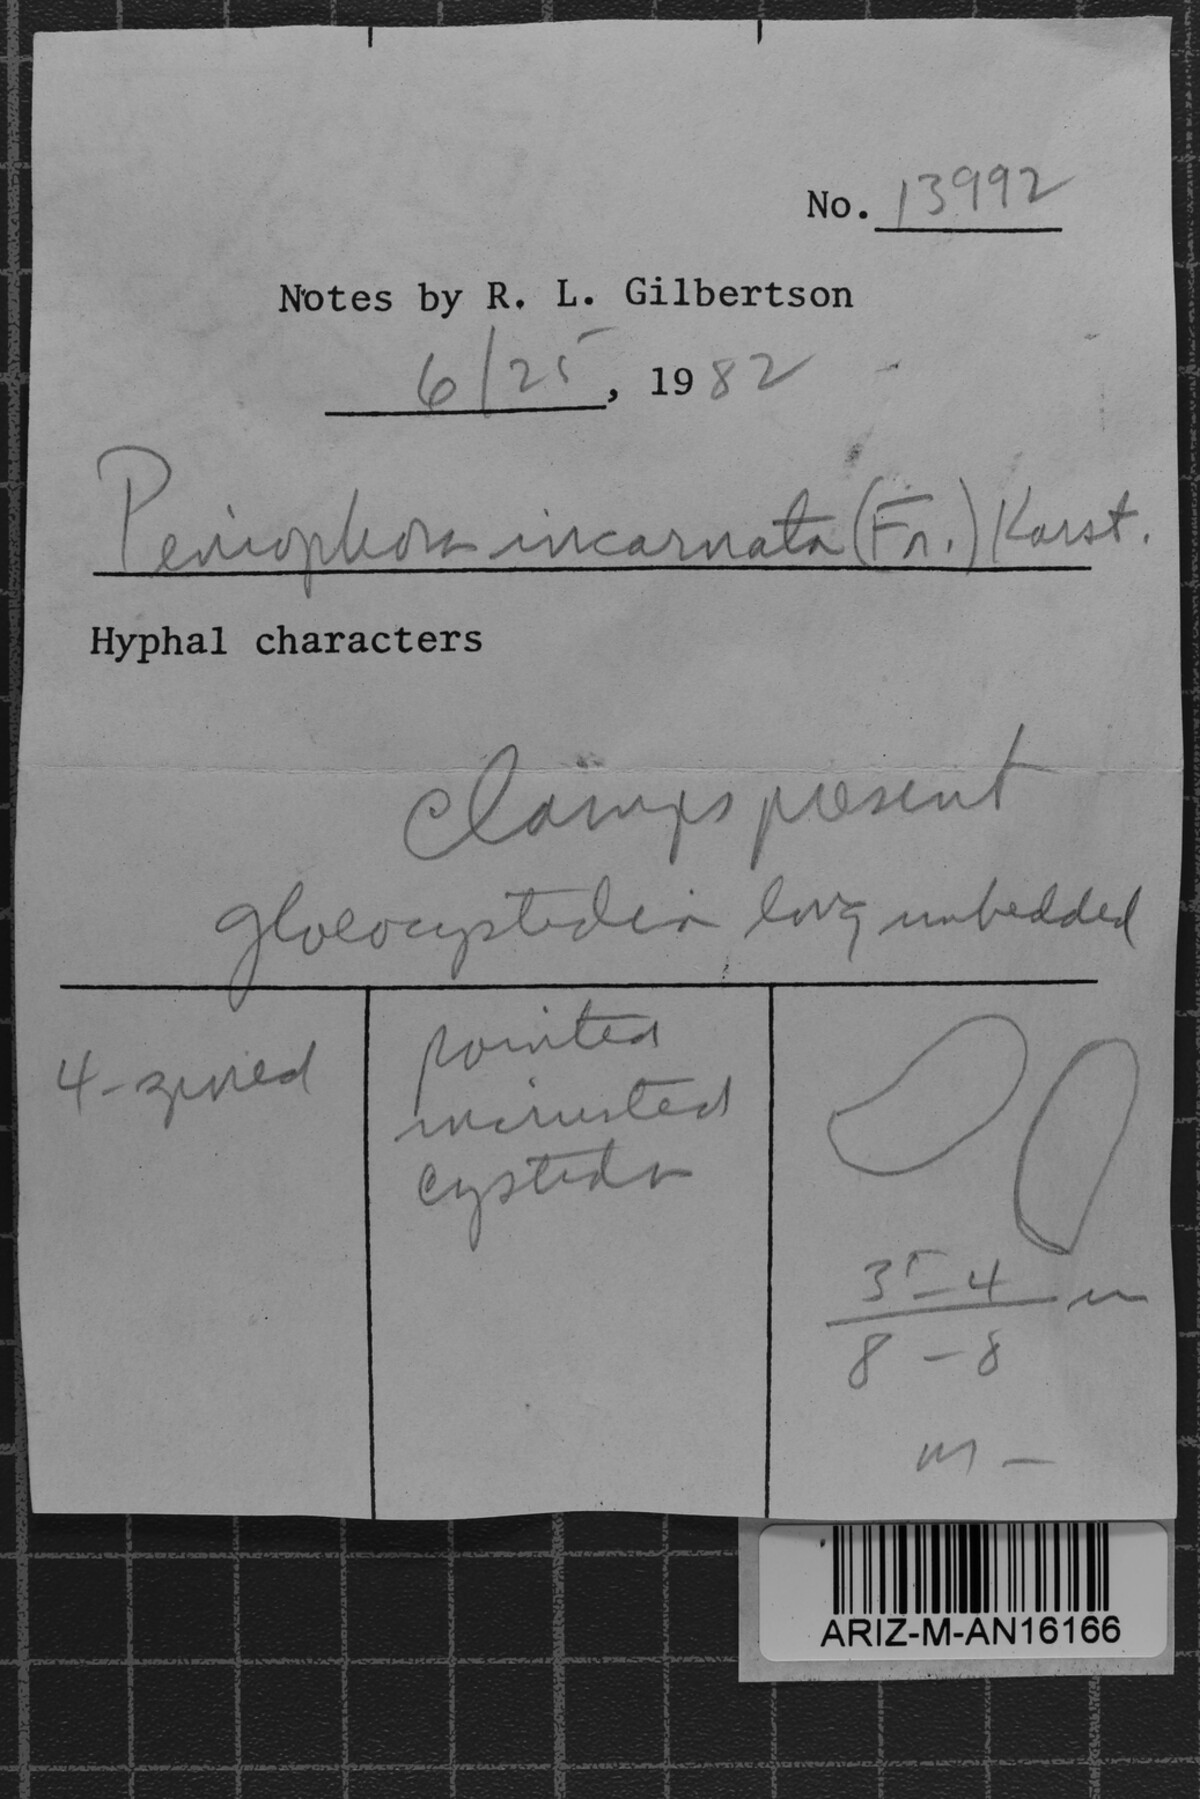 No. 13992
Notes by R. L. Gilbertson
6/25, 1982
Peniophora incarnata (Fr.) Karst.
Hyphal characters
Clamps present
gloeocystidia long imbedded
4-spored
pointed
incrusted
cystidia
35-4
8-8
ARIZ-M-AN16166